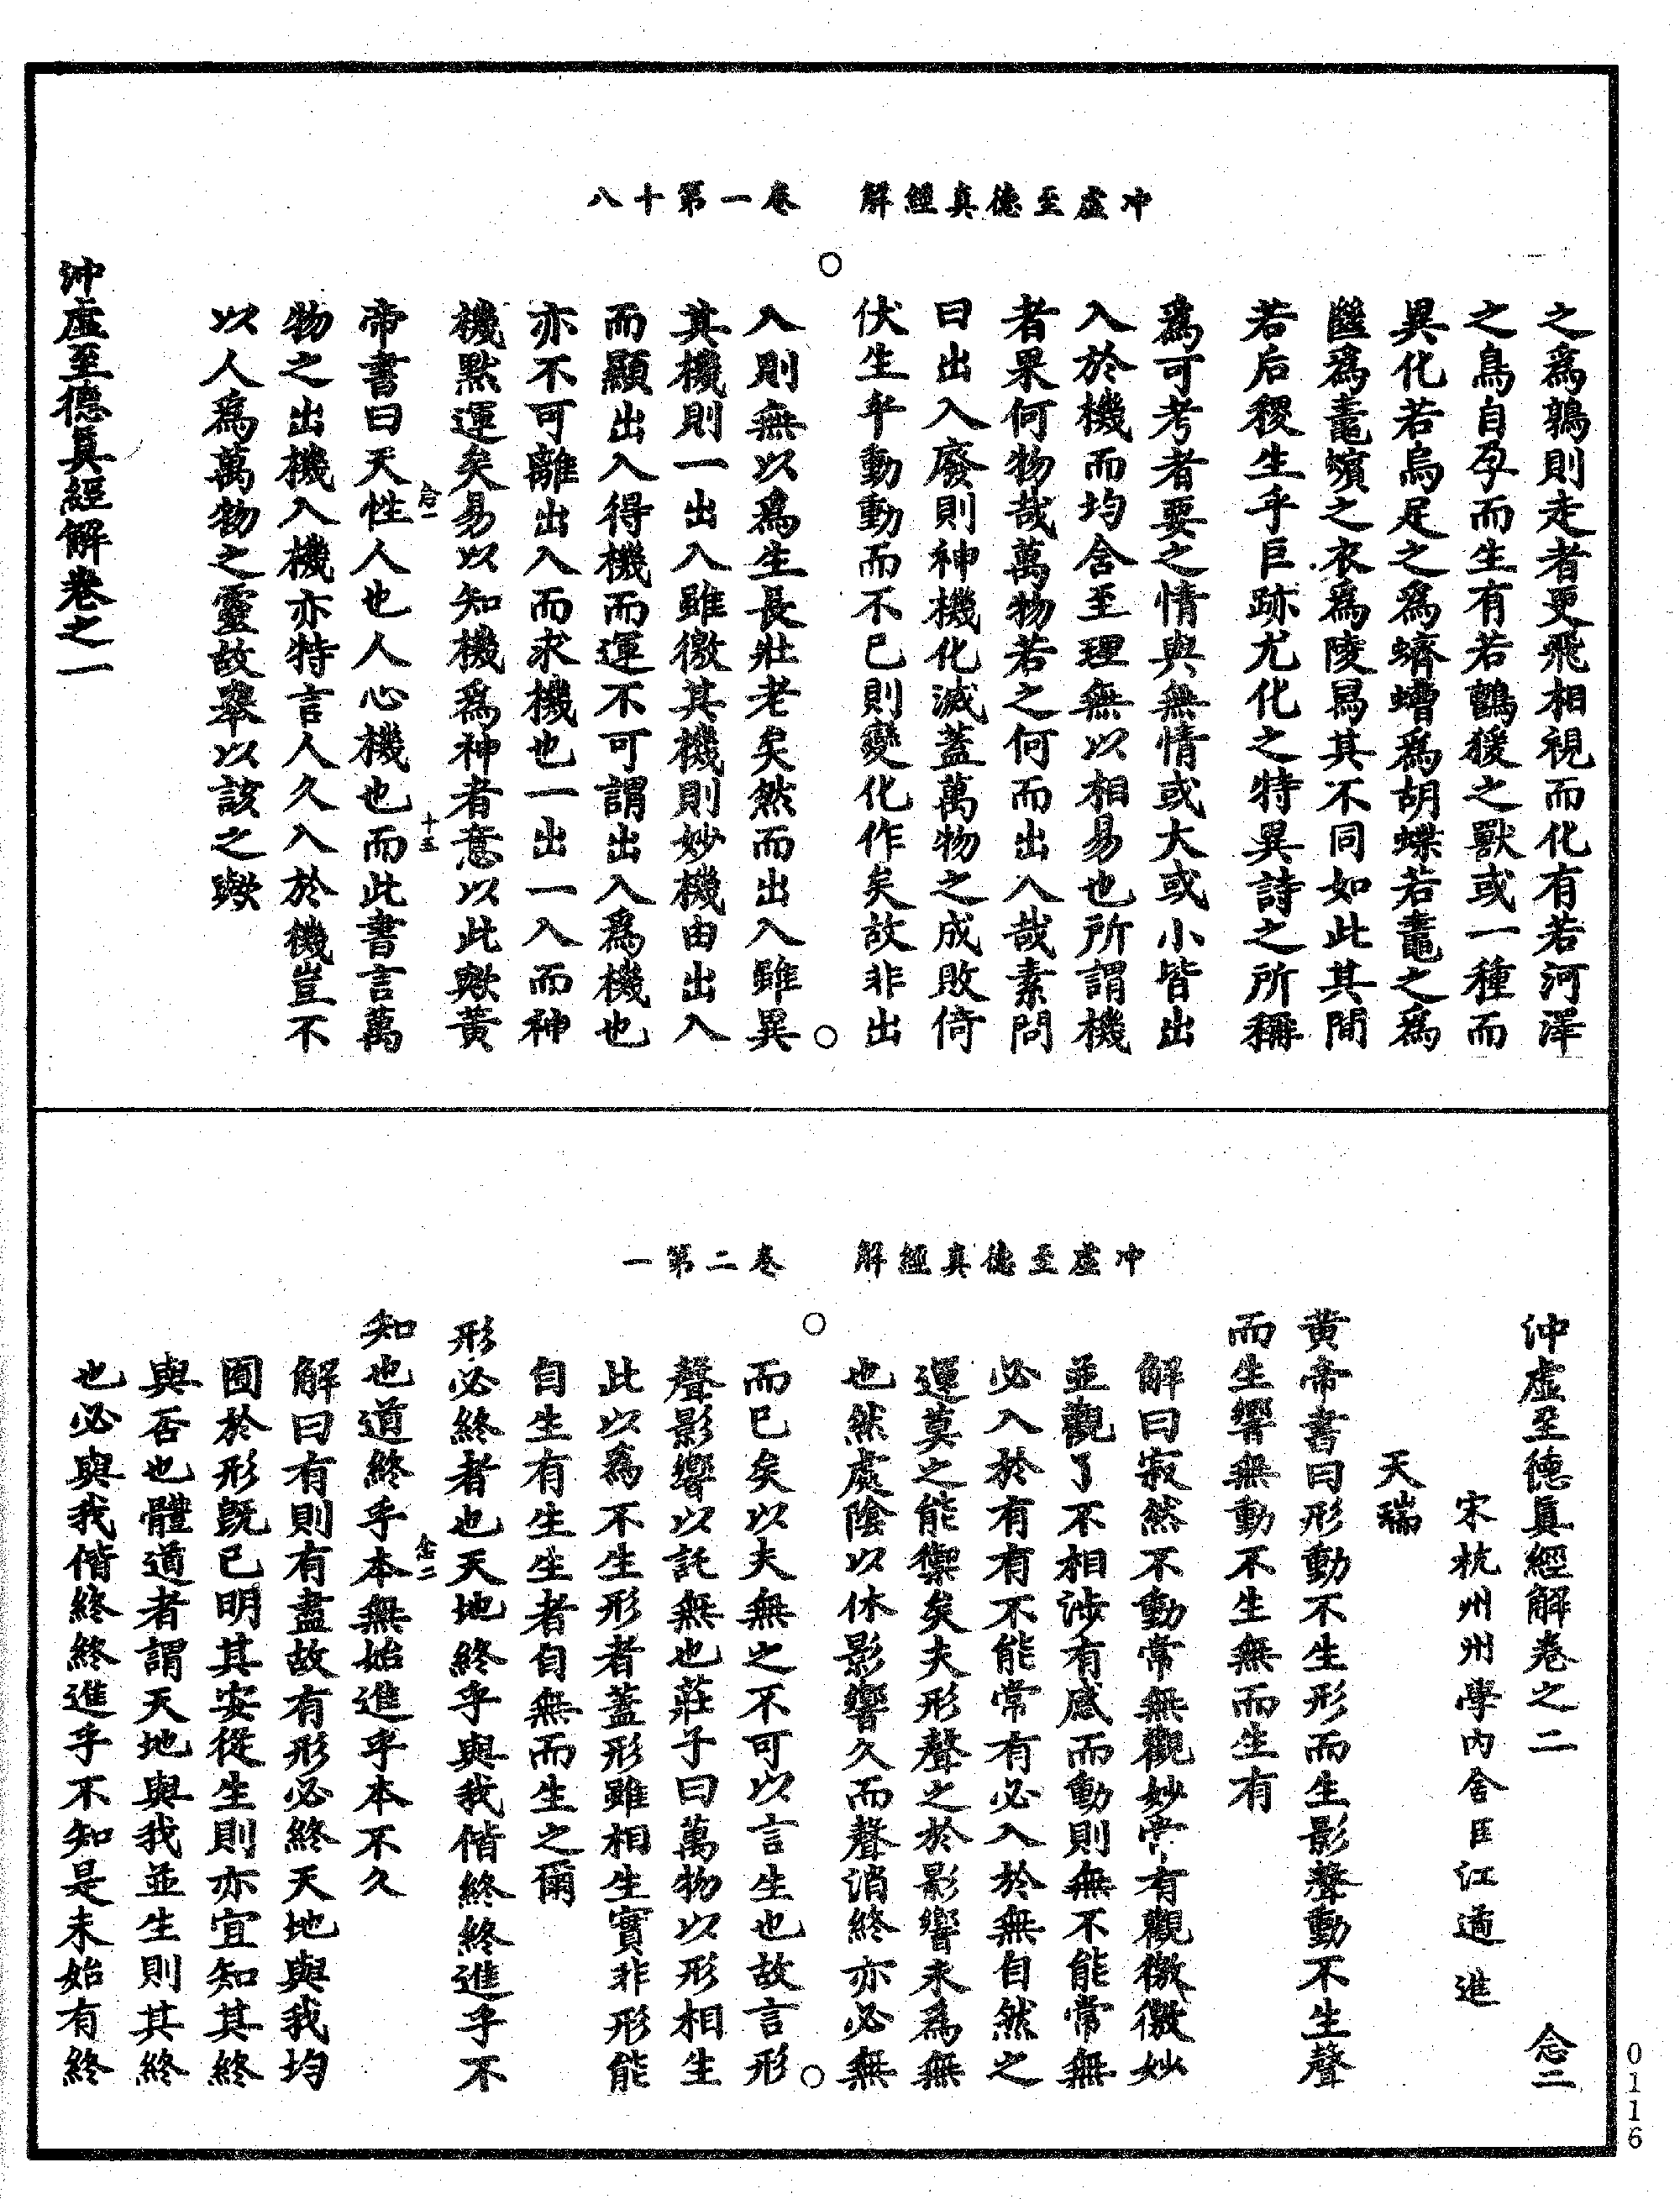 冲虛至德真經解　卷一第十八
之爲鶉則走者更飛相視而化有若河澤
之鳥自孕而生有若鶂猨之獸或一種而
異化若烏足之爲蠐螬爲胡蝶若鼃之爲
䘉爲鼃蠙之衣爲陵舄其不同如此其間
若后稷生乎巨跡尤化之特異詩之所稱
爲可考者要之情與無情或大或小皆出
入於機而均含至理無以相易也所謂機
者果何物哉萬物若之何而出入哉素問
曰出入廢則神機化滅蓋萬物之成敗倚
伏生乎動動而不已則變化作矣故非出
入則無以爲生長壯老矣然而出入雖異
其機則一出入雖徼其機則妙機由出入
而顯出入得機而運不可謂出入爲機也
亦不可離出入而求機也一出一入而神
機默運矣易以知機爲神者意以此歟黃
帝書曰天性人也人心機也而此書言萬
物之出機入機亦特言人久入於機豈不
以人爲萬物之靈故舉以該之歟
念一　十五
冲虛至德眞經解卷之一
冲虛至德真經解　卷二第一
冲虛至德眞經解卷之二　念二
宋杭州州學內舍臣江遹進
天瑞
黃帝書曰形動不生形而生影聲動不生聲
而生響無動不生無而生有
解曰寂然不動常無觀妙常有觀徼徼妙
並觀了不相涉有感而動則無不能常無
必入於有有不能常有必入於無自然之
運莫之能禦矣夫形聲之於影響未爲無
也然處陰以休影響久而聲消終亦必無
而已矣以夫無之不可以言生也故言形
聲影響以託無也莊子曰萬物以形相生
此以為不生形者蓋形雖相生實非形能
自生有生生者自無而生之爾
形必終者也天地終乎與我偕終終進乎不
知也道終乎本無始進乎本不久
念二
解曰有則有盡故有形必終天地與我均
囿於形旣已明其安從生則亦宜知其終
與否也體道者謂天地與我並生則其終
也必與我偕終終進乎不知是未始有終
0116